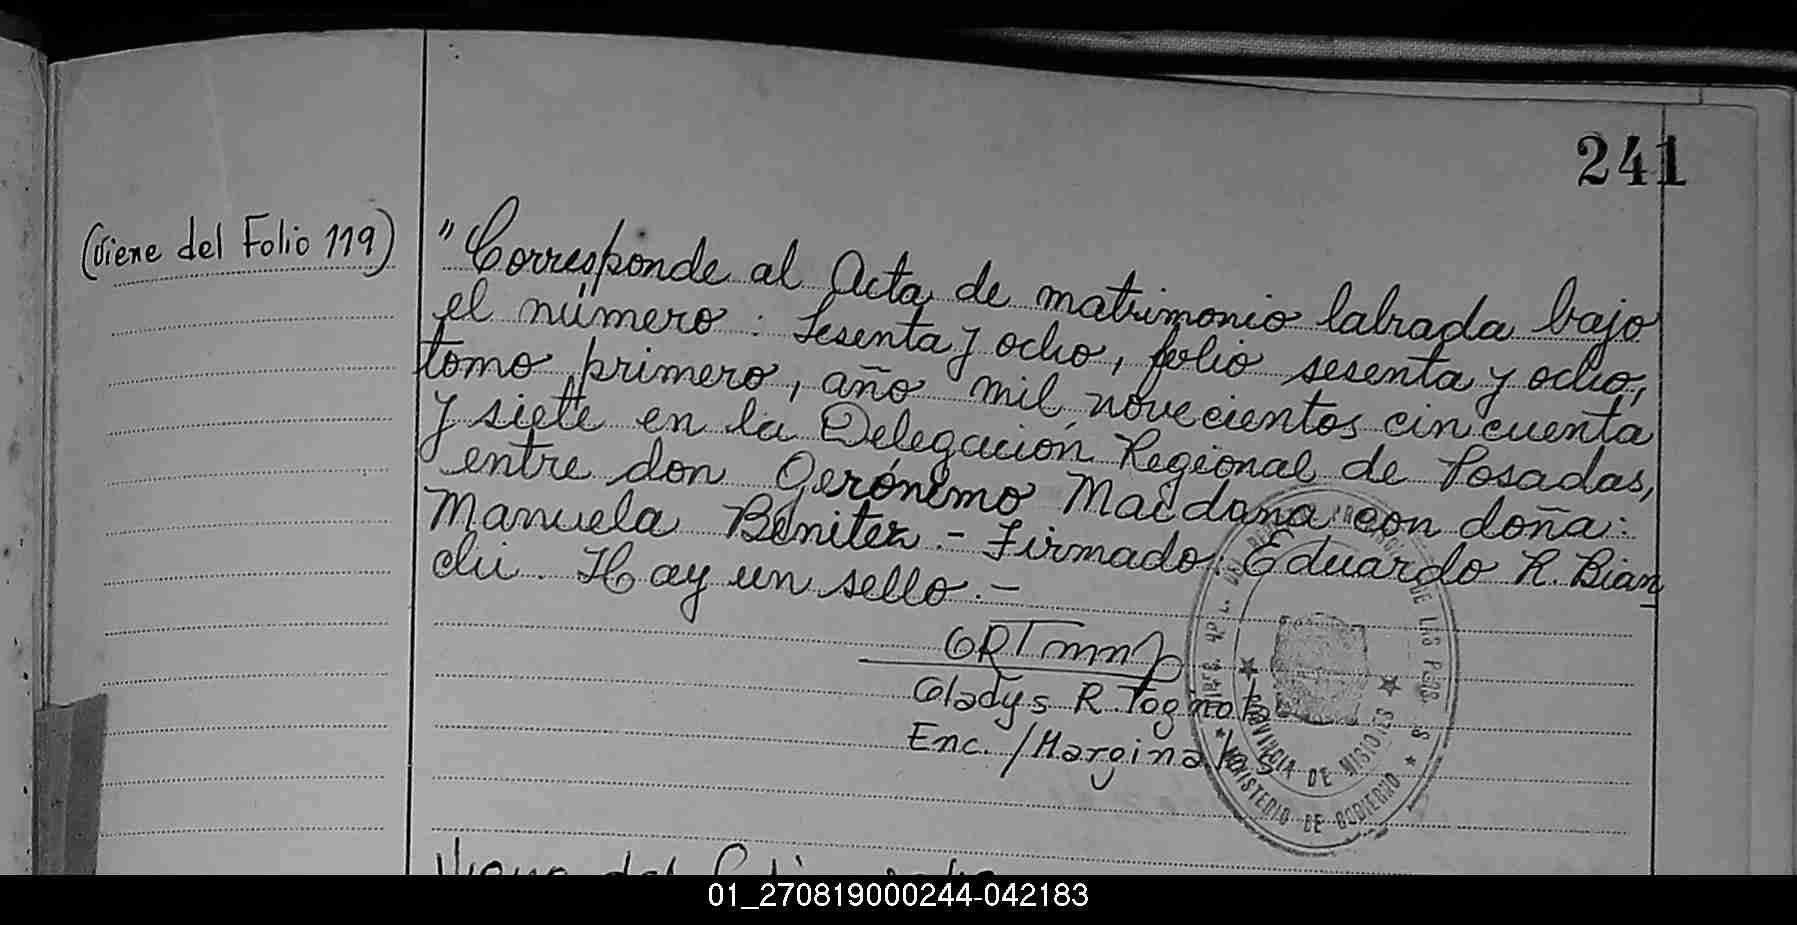 241
(Viene del Folio 119)
"Corresponde al Acta de matrimonio labrada bajo
el número: Sesenta y ocho, folio sesenta y ocho,
tomo primero, año mil novecientos cincuenta
y siete en la Delegación Regional de Posadas,
entre don Gerónimo Maidana con doña:
Manuela Benitez.- Firmado: Eduardo R. Bian
chi. Hay un sello.-
Gladys R. Togno
Enc. /Marginales
PROVINCIA DE MISIONES
MINISTERIO DE GOBIERNO
DE LAS PERS
01_270819000244-042183